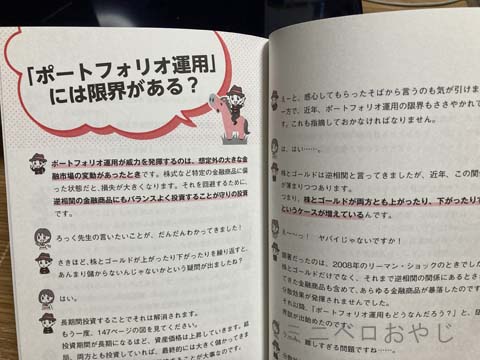 「ポートフォリオ運用」
には限界がある？
ポートフォリオ運用が威力を発揮するのは、想定外の大きな金
融市場の変動があったときです。株式など特定の金融商品に偏
った状態だと、損失が大きくなります。それを回避するために、
逆相関の金融商品にもバランスよく投資することが守りの投資
です。
ろっく先生の言いたいことが、だんだんわかってきました！
さきほど、株とゴールドが上がったり下がったりを繰り返すと、
あんまり儲からないんじゃないかという疑問が出ましたね？
はい。
長期間投資することでそれは解消されます。
もう一度、147ページの図を見てください。
投資期間が長期になるほど、資産価格は上昇していきます。
両方とも投資していれば、最終的には大きく儲かってきま
えーと、感心してもらったそばから言うのも気が引けま
一方で、近年、ポートフォリオ運用の限界もささやかれて
す。これも指摘しておかなければなりません。
は、はい……。
株とゴールドは逆相関と言ってきましたが、近年、この関
が薄まりつつあります。
つまり、株とゴールドが両方とも上がったり、下がったりす
というケースが増えているんです。
えーーっ！ ヤバイじゃないですか！
顕著だったのは、2008年のリーマン・ショックのときでした
株とゴールドだけでなく、それまで逆相関の関係にあるとさ
た金融商品も含めて、あらゆる金融商品が暴落したのです
分散効果が発揮されませんでした。
それ以降、「ポートフォリオ運用もどうなんだろう？」と、
問が出始めたのです。
難しすぎる問題ですね……
ベロおやじ